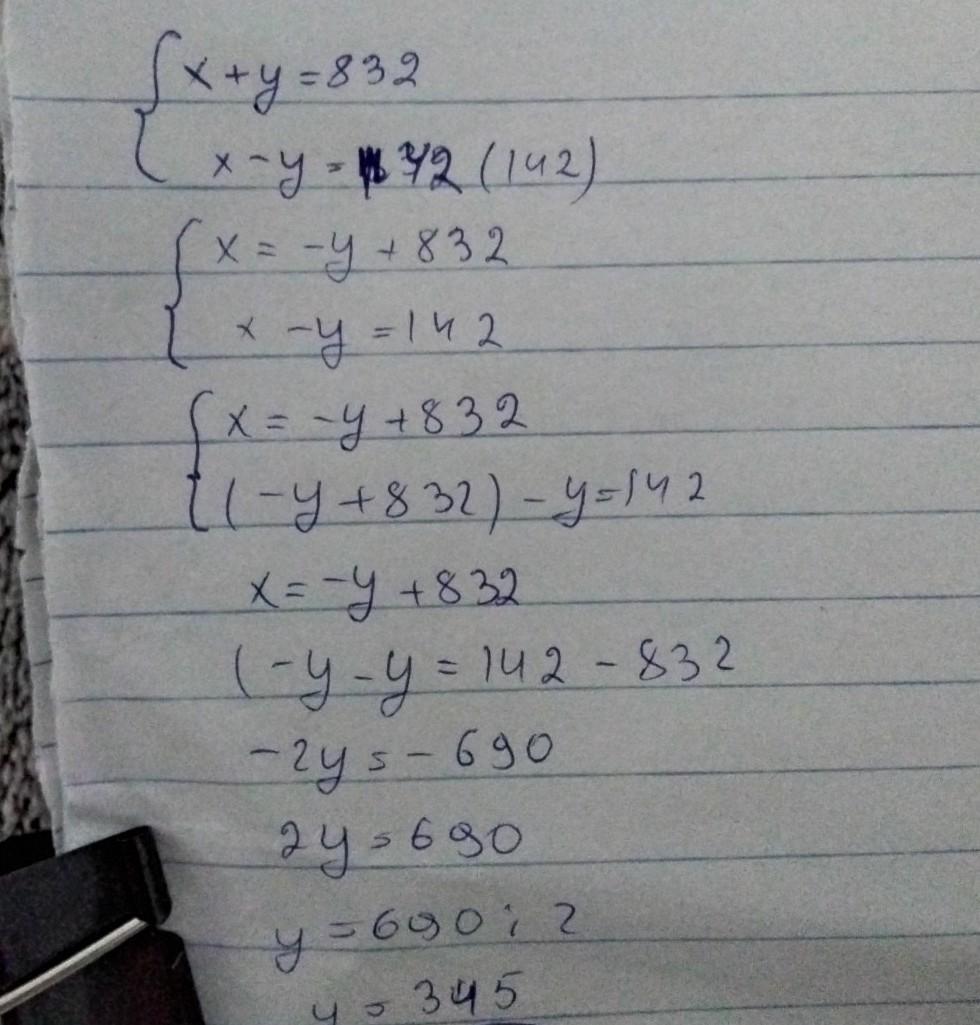 x + y = 832
x - y = 142 (142)
x = -y + 832
x - y = 142
x = -y + 832
(-y + 832) - y = 142
x = -y + 832
(-y - y = 142 - 832
-2y = -690
2y = 690
y = 690 : 2
y = 345